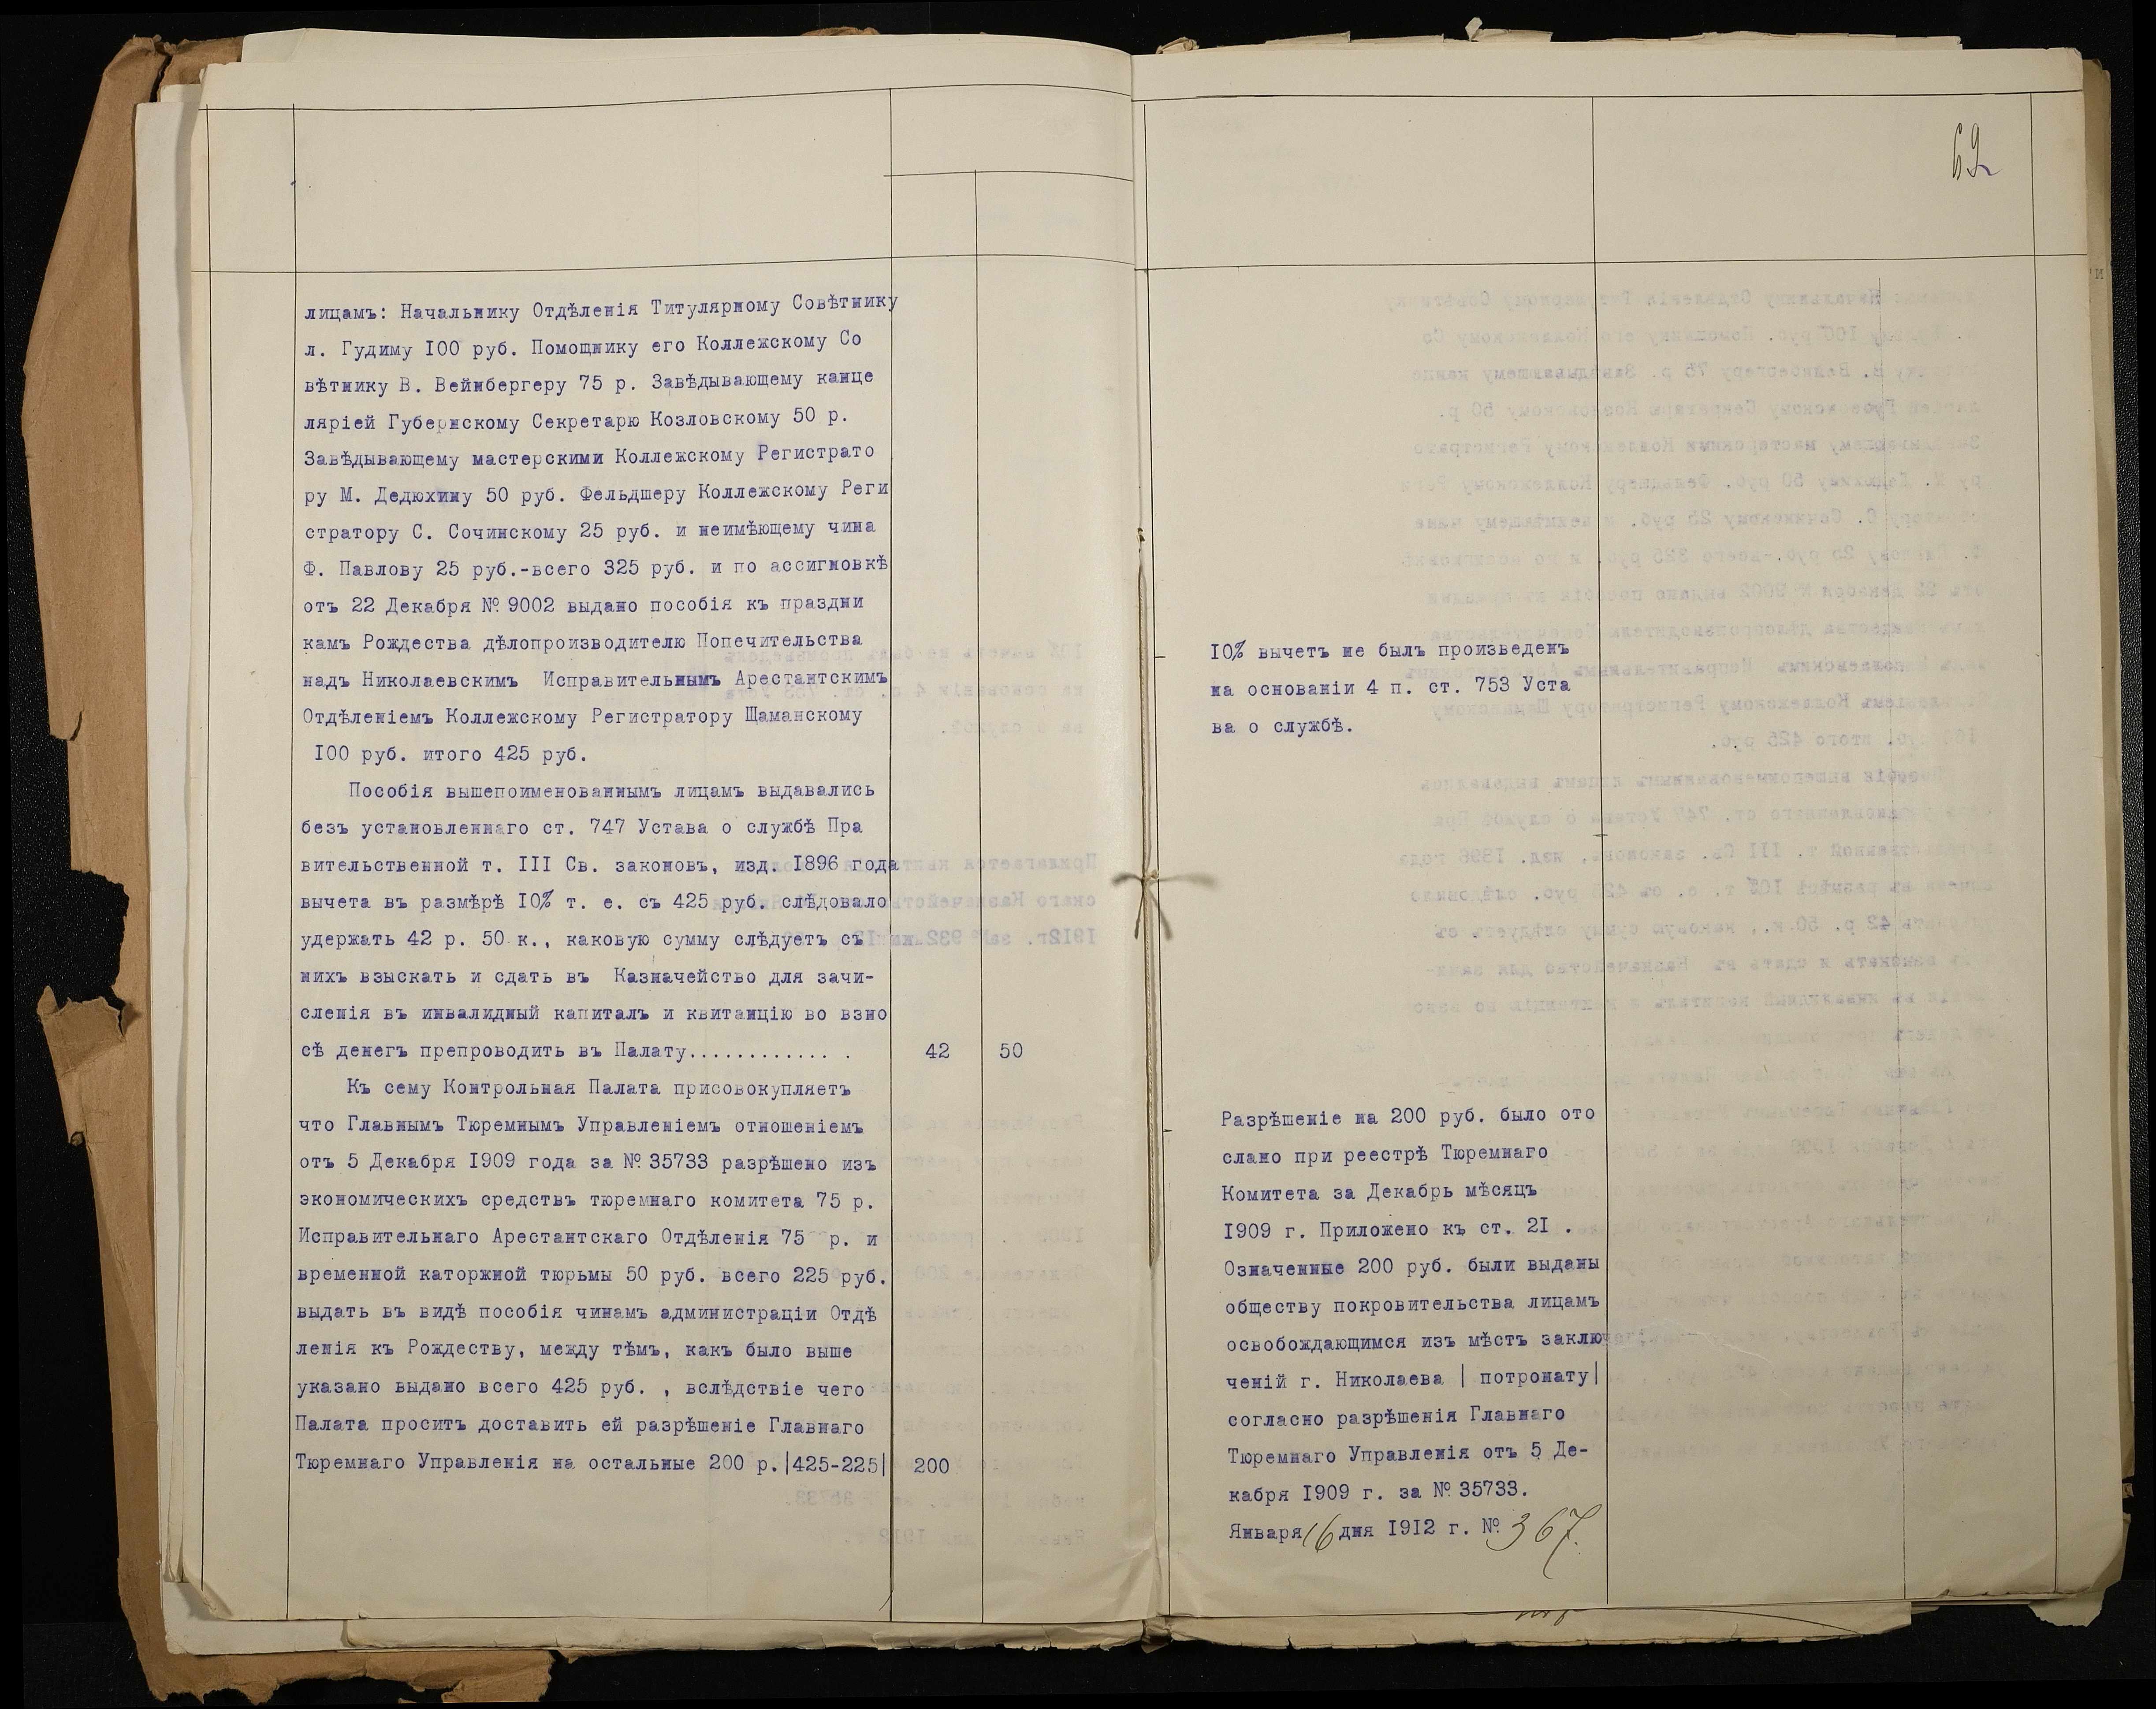 лицамъ: Начальнику Отдѣленія Титулярному Совѣтнику
л. Гудиму 100 руб. Помощнику его Коллежскому Со
вѣтнику В. Вейнбергеру 75 р. Завѣдывающему канце
ляріей Губернскому Секретарю Козловскому 50 р.
Завѣдывающему мастерскими Коллежскому Регистрато
ру М. Дедюхину 50 руб. Фельдшеру Коллежскому Реги
стратору С. Сочинскому 25 руб. и неимѣющему чина
Ф. Павлову 25 руб.-всего 325 руб. и по ассигновкѣ
отъ 22 Декабря № 9002 выдано пособія къ праздни
камъ Рождества дѣлопроизводителю Попечительства
надъ Николаевскимъ Исправительнымъ Арестантскимъ
Отдѣленіемъ Коллежскому Регистратору Щаманскому
100 руб. итого 425 руб.
Пособія вышепоименованнымъ лицамъ выдавались
безъ установленнаго ст. 747 Устава о службѣ Пра
вительственной т. III Св. законовъ, изд. 1896 года
вычета въ размѣрѣ 10% т. е. съ 425 руб. слѣдовало
удержать 42 р. 50 к., каковую сумму слѣдуетъ съ
нихъ взыскать и сдать въ Казначейство для зачи-
сленія въ инвалидный капиталъ и квитанцію во взно
сѣ денегъ препроводить въ Палату............ . 42 50
Къ сему Контрольная Палата присовокупляетъ
что Главнымъ Тюремнымъ Управленіемъ отношеніемъ
отъ 5 Декабря 1909 года за № 35733 разрѣшено изъ
экономическихъ средствъ тюремнаго комитета 75 р.
Исправительнаго Арестантскаго Отдѣленія 75 р. и
временной каторжной тюрьмы 50 руб. всего 225 руб.
выдать въ видѣ пособія чинамъ администраціи Отдѣ
ленія къ Рождеству, между тѣмъ, какъ было выше
указано выдано всего 425 руб. , вслѣдствіе чего
Палата проситъ доставить ей разрѣшеніе Главнаго
Тюремнаго Управленія на остальные 200 р.|425-225| 200
62
10% вычетъ не былъ произведенъ
на основаніи 4 п. ст. 753 Уста
ва о службѣ.
Разрѣшеніе на 200 руб. было ото
слано при реестрѣ Тюремнаго
Комитета за Декабрь мѣсяцъ
1909 г. Приложено къ ст. 21 .
Означенные 200 руб. были выданы
обществу покровительства лицамъ
освобождающимся изъ мѣстъ заклю
ченій г. Николаева | потронату|
согласно разрѣшенія Главнаго
Тюремнаго Управленія отъ 5 Де-
кабря 1909 г. за № 35733.
Января 16 дня 1912 г. № 367.